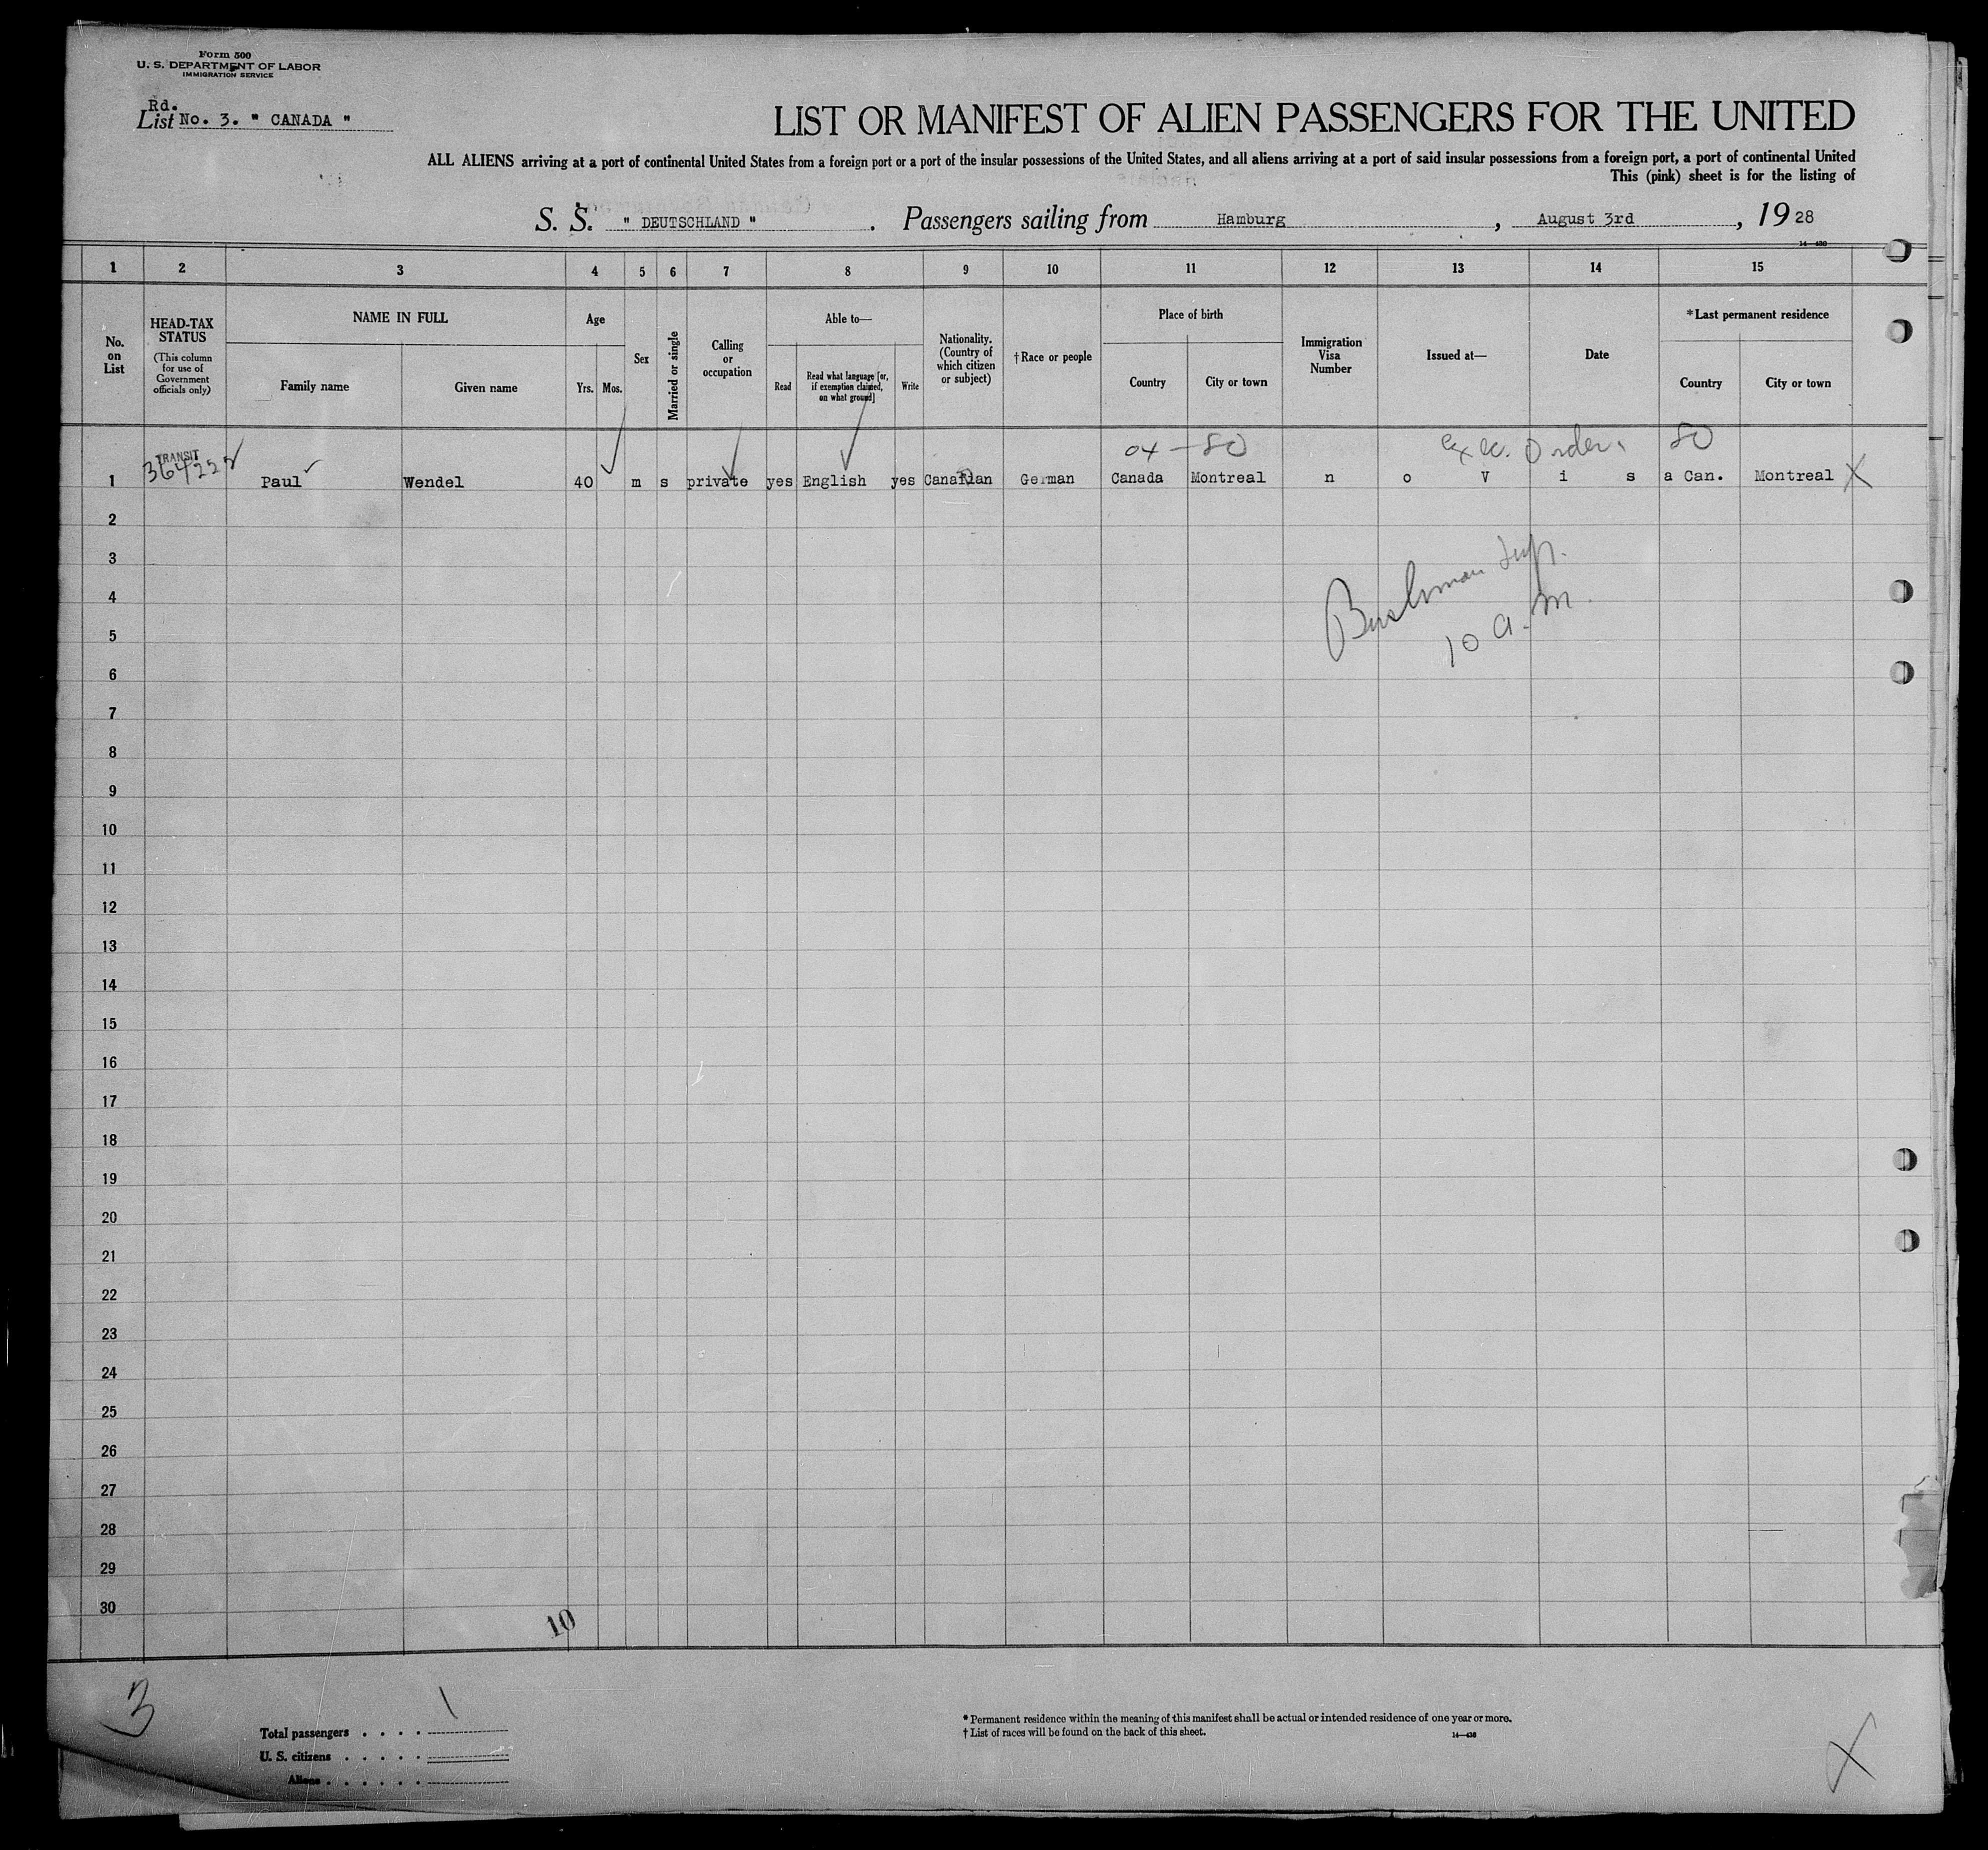 Form 500
U. S. DEPARTMENT OF LABOR
IMMIGRATION SERVICE
Rd.
List No. 3. " CANADA "
LIST OR MANIFEST OF ALIEN PASSENGERS FOR THE UNITED
ALL ALIENS arriving at a port of continental United States from a foreign port or a port of the insular possessions of the United States, and all aliens arriving at a port of said insular possessions from a foreign port, a port of continental United
This (pink) sheet is for the listing of
S. S. " DEUTSCHLAND " . Passengers sailing from Hamburg , August 3rd , 19 28
1 2 3 4 5 6 7 8 9 10 11 12 13 14 15
No. on List
HEAD-TAX STATUS
(This column for use of Government officials only)
NAME IN FULL
Family name Given name
Age
Yrs. Mos.
Sex
Married or single
Calling or occupation
Able to—
Read
Read what language [or, if exemption claimed, on what ground]
Write
Nationality. (Country of which citizen or subject)
†Race or people
Place of birth
Country City or town
Immigration Visa Number
Issued at—
Date
*Last permanent residence
Country City or town
04 — 80 Exec. Order. 80
TRANSIT
1 Paul Wendel 40 m s private yes English yes Canadian German Canada Montreal n o V i s a Can. Montreal X
2
3
4
5
10 a.m.
6
7
8
9
10
11
12
13
14
15
16
17
18
19
20
21
22
23
24
25
26
27
28
29
30
10
3
Total passengers . . . . 1
U. S. citizens . . . . .
Aliens . . . . . .
* Permanent residence within the meaning of this manifest shall be actual or intended residence of one year or more.
† List of races will be found on the back of this sheet.
X